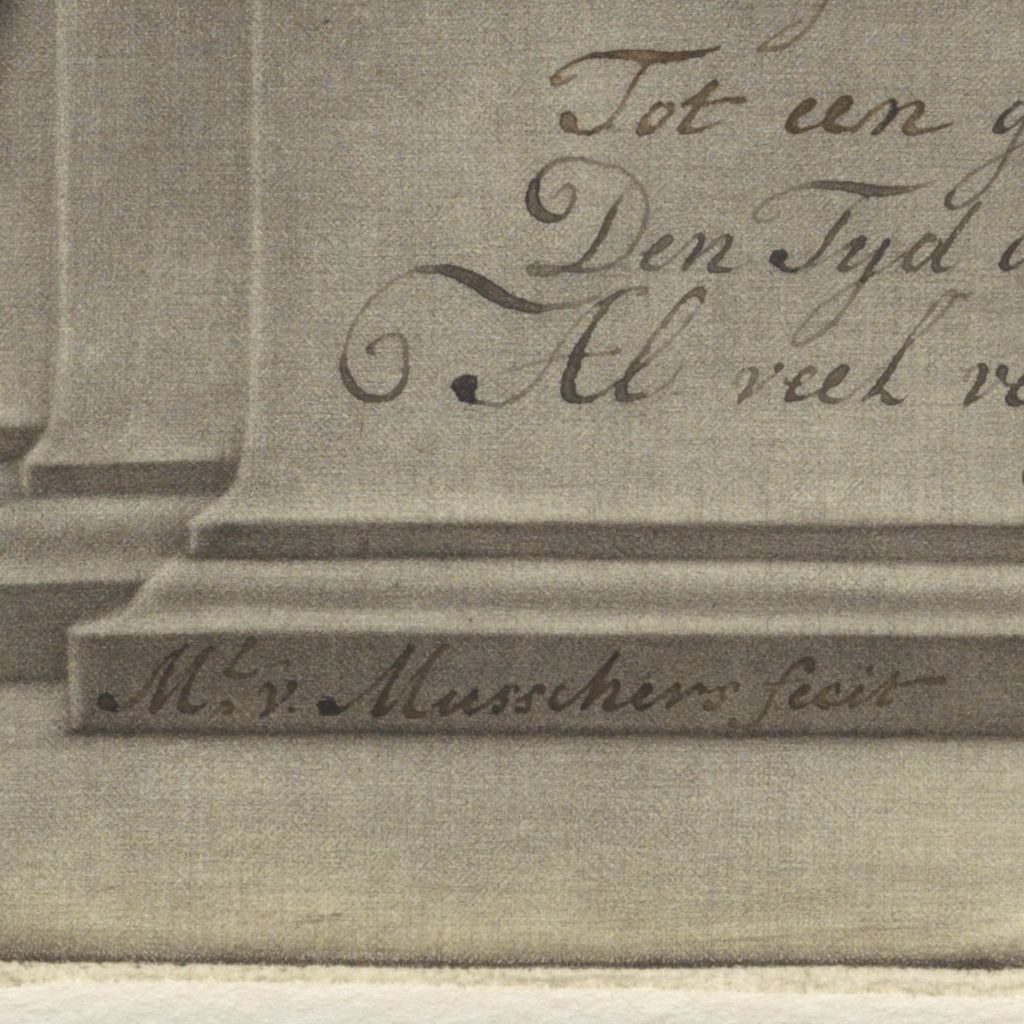 Tot een g
Den Tyd
Al veel ve
M.L v. Musschers fecit